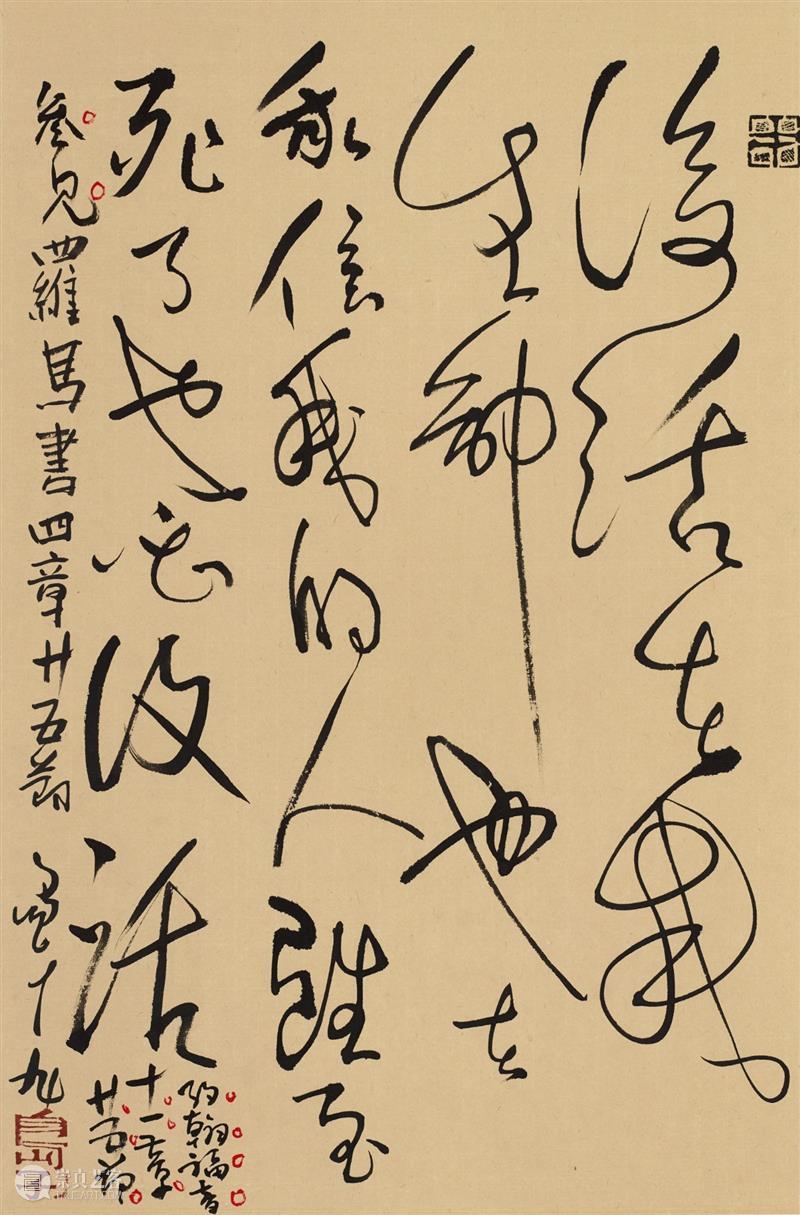 復活在我
生命也在
我信我的人雖至
死了也必復活
約翰福音
十一章
廿五節
參見羅馬書四章廿五節
崇真艺客